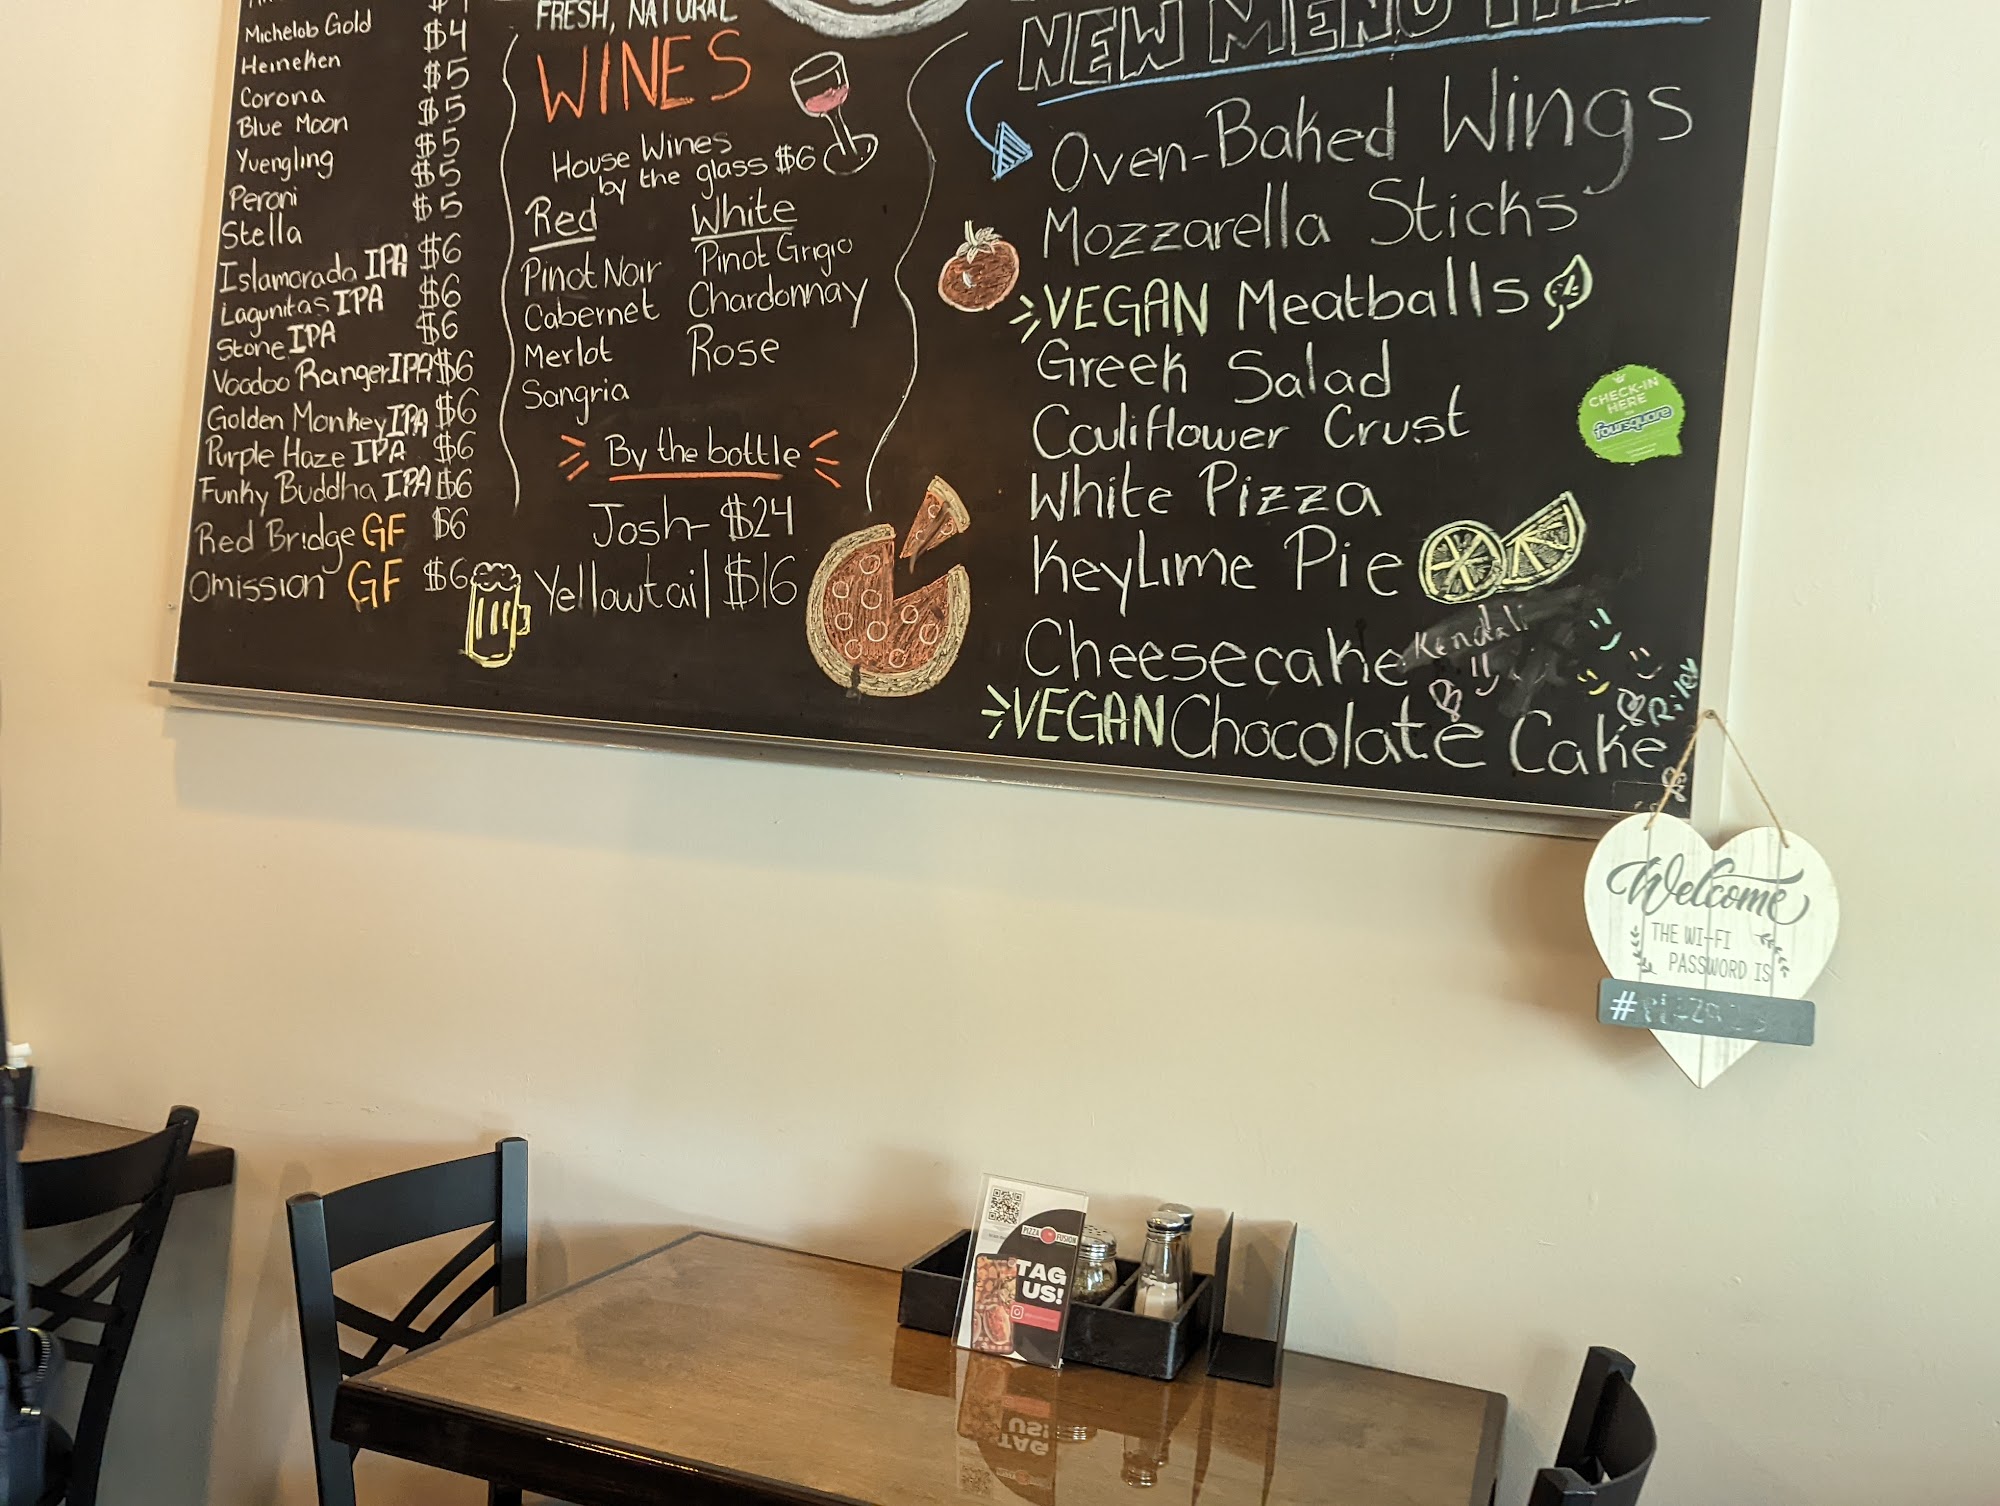 Michelob Gold $4
Heineken $5
Corona $5
Blue Moon $5
Yuengling $5
Peroni $5
Stella
Islamorada IPA $6
Lagunitas IPA $6
Stone IPA $6
Voodoo Ranger IPA $6
Golden Monkey IPA $6
Purple Haze IPA $6
Funky Buddha IPA $6
Red Bridge GF $6
Omission GF $6
FRESH, NATURAL
WINES
House Wines
by the glass $6
Red
Pinot Noir
Cabernet
Merlot
Sangria
White
Pinot Grigio
Chardonnay
Rose
By the bottle
Josh- $24
Yellowtail $16
NEW MENU
Oven-Baked Wings
Mozzarella Sticks
VEGAN Meatballs
Greek Salad
Cauliflower Crust
White Pizza
KeyLime Pie
Cheesecake
VEGAN Chocolate Cake
Kendall
Riley
CHECK-IN
HERE
foursquare
Welcome
THE WI-FI
PASSWORD IS
#
PIZZA FUSION
TAG
US!